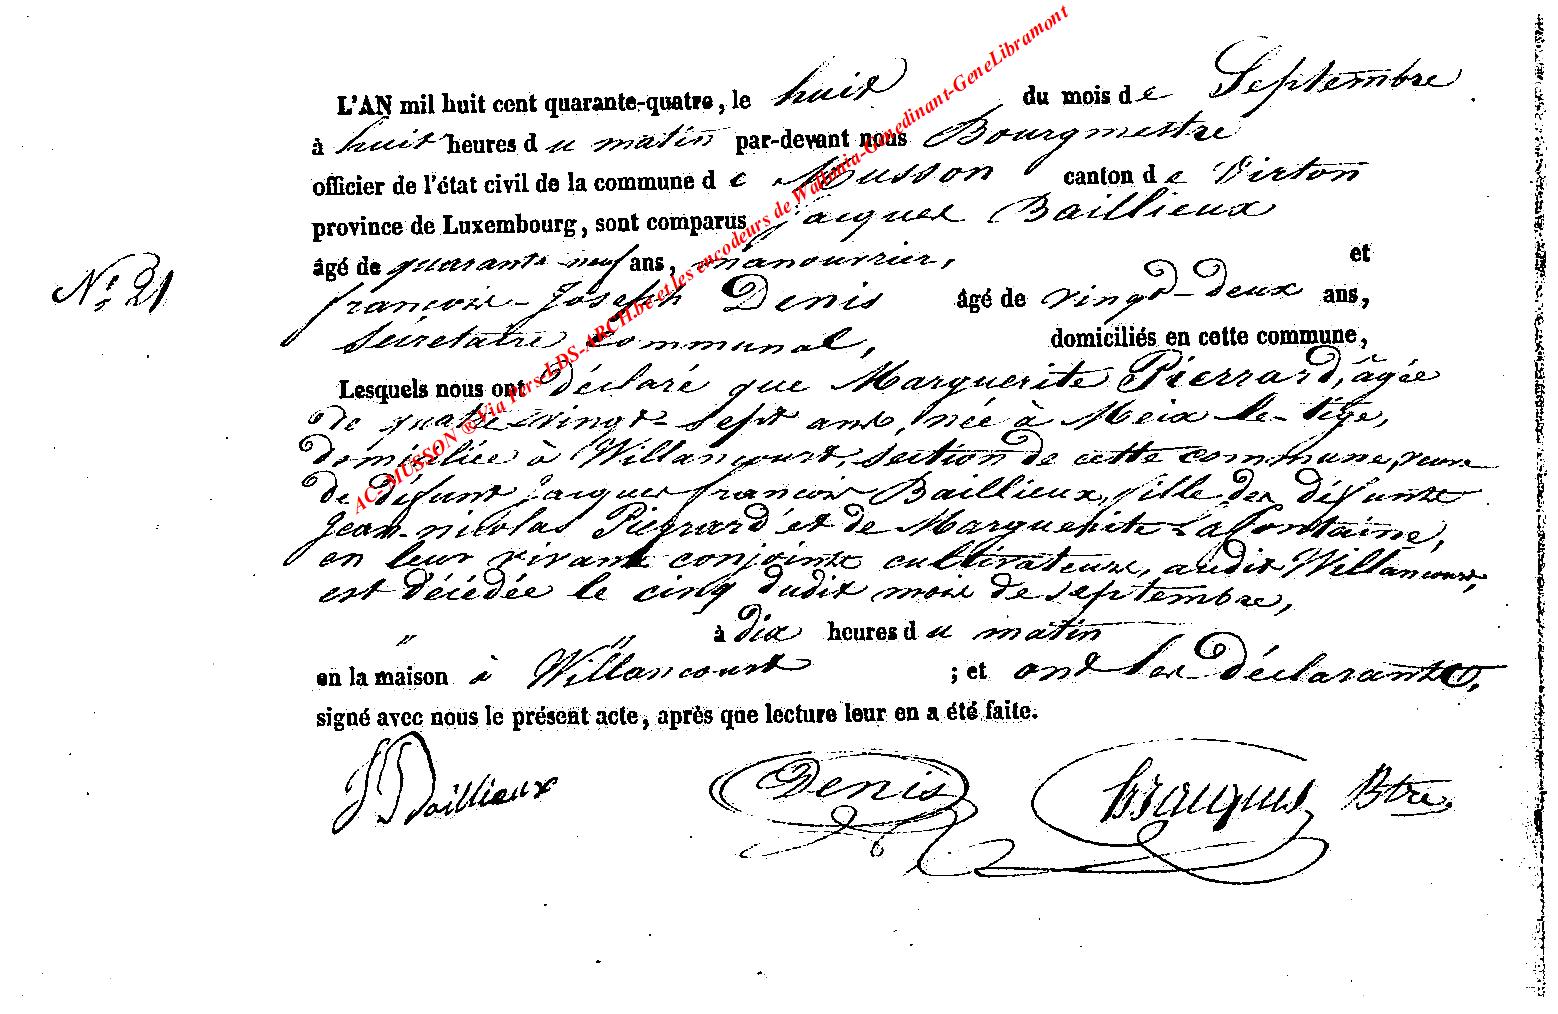 L'AN mil huit cent quarante-quatre, le huit du mois de Septembre
à huit heures du matin par-devant nous Bourgmestre
officier de l'état civil de la commune de Musson canton de Virton
province de Luxembourg, sont comparus Jacques Baillieux
âgé de quarante-neuf ans, manouvrier, et
N° 21
françois-Joseph Denis âgé de vingt-deux ans,
Secrétaire communal, domiciliés en cette commune,
Lesquels nous ont déclaré que Marguerite Pierrard, âgée
de quatre vingt-sept ans, née à Meix le-tige,
domiciliée à Willancourt, section de cette commune, veuve
de défunt Jacques françois Baillieux, fille des défunts
Jean-nicolas Pierrard et de Marguerite Lafontaine,
en leur vivant conjoints cultivateurs, audit Willancourt,
est décédée le cinq dudit mois de septembre,
" " à dix heures du matin
en la maison à Willancourt ; et ont les déclarants,
signé avec nous le présent acte, après que lecture leur en a été faite.
J Baillieux Denis Btre
AC-MUSSON ® Via Pers LDS-ARCH.be et les encodeurs de Wallonia-Genedinant-GeneLibramont